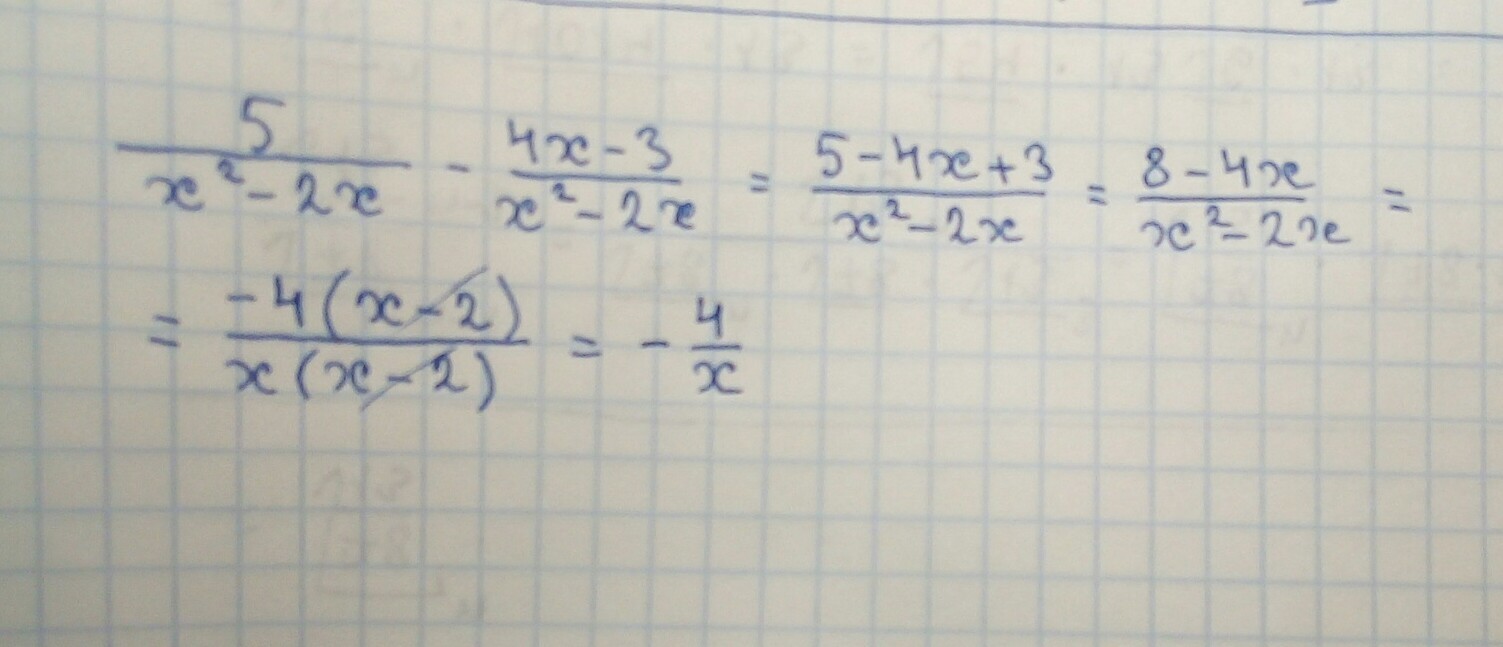 5/(x² - 2x) - (4x - 3)/(x² - 2x) = (5 - 4x + 3)/(x² - 2x) = (8 - 4x)/(x² - 2x) =
= -4(x - 2)/(x(x - 2)) = - 4/x